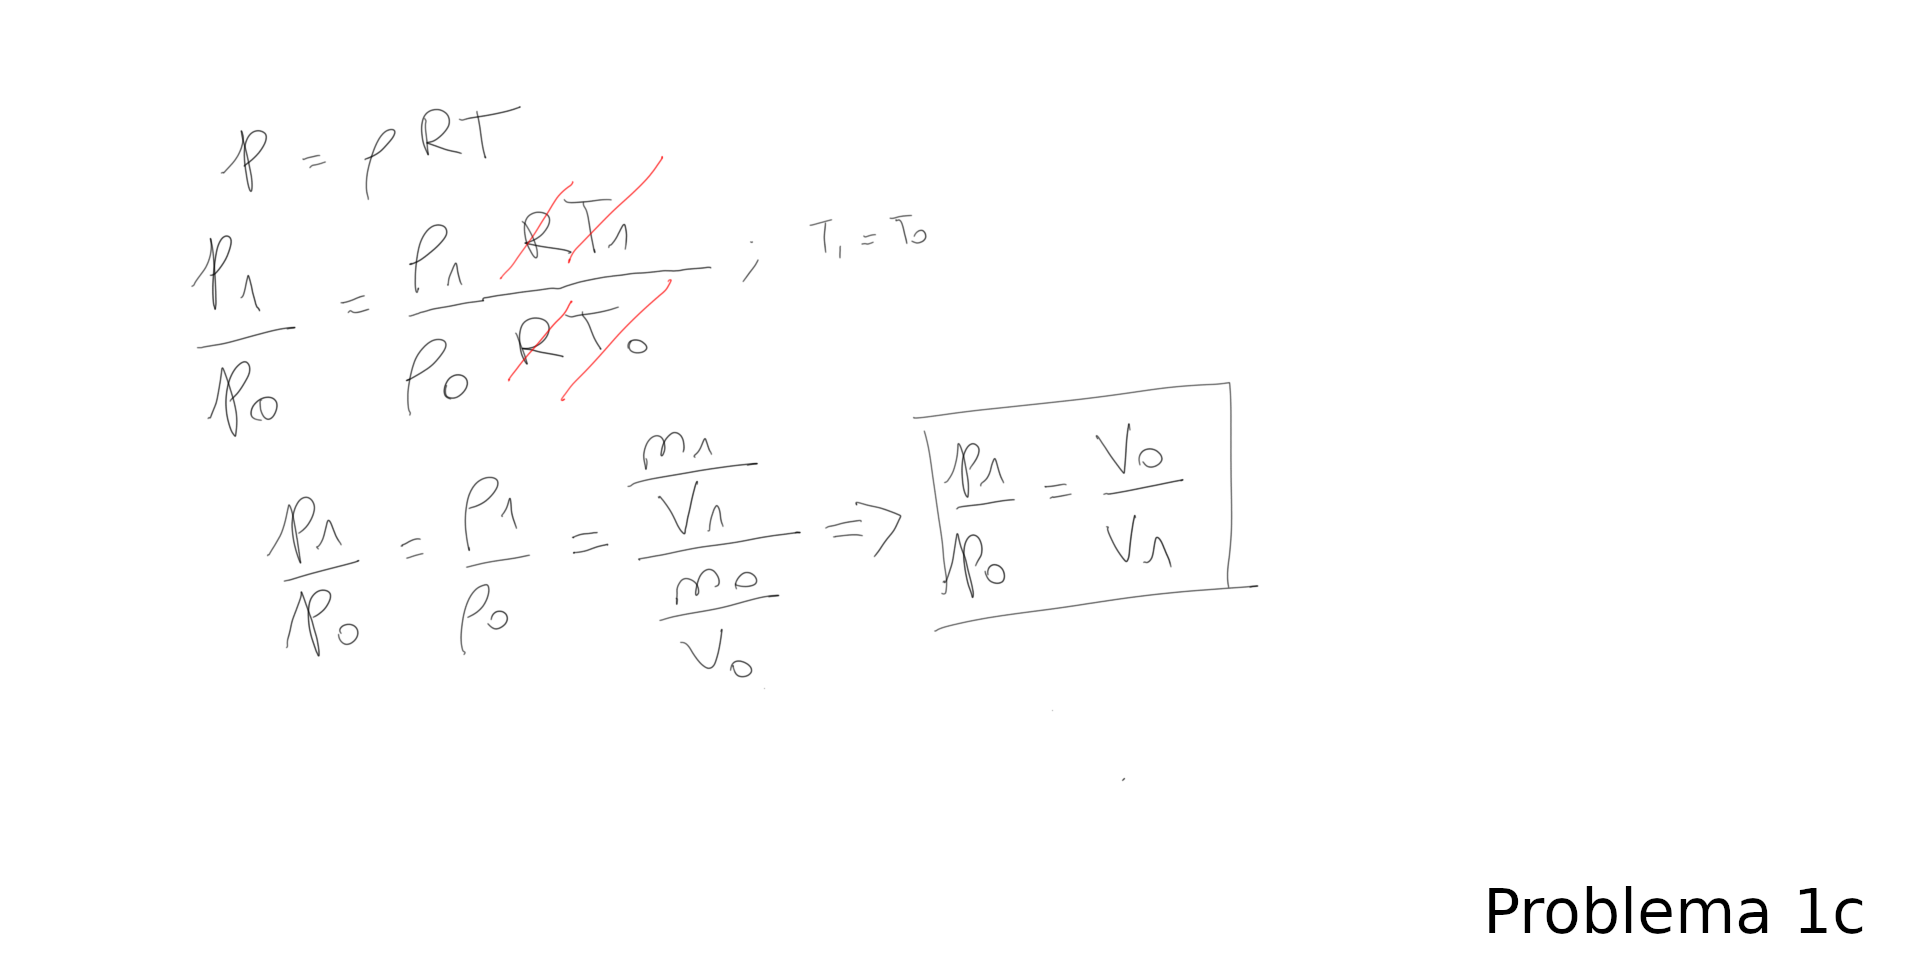 p = ρRT
p₁/p₀ = ρ₁RT₁/ρ₀RT₀ ; T₁ = T₀
p₁/p₀ = ρ₁/ρ₀ = (m₁/V₁)/(m₀/V₀) => p₁/p₀ = V₀/V₁
Problema 1c